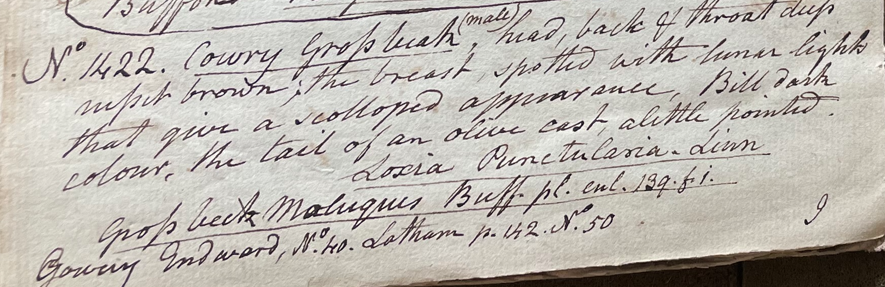 Buffon
N.º 1422. Cowry Grosbeak (male), head, back & throat deep
russet brown; the breast spotted with lunar lights
that give a scolloped appearance, Bill dark
colour, the tail of an olive cast, a little pointed.
Loxia Punctularia - Linn
Grosbeck Moluques Buff. pl. enl. 139. f. i.
Gowry Endward, Nº. 40. Latham p. 142. Nº 50
9